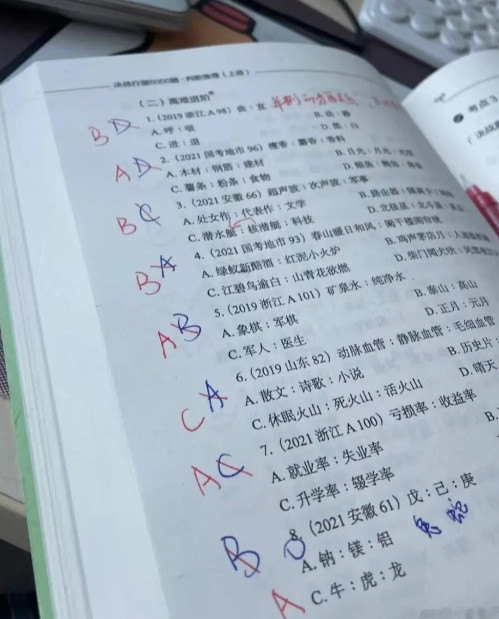 决战行测5000题·判断推理（上册）
（二）高难进阶
1.（2019 浙江 A 98）曲：直
B D
A. 呼：吸
B. 动：静
C. 进：退
D. 黑：白
2.（2021 国考地市 96）檀香：麝香：香料
A D
A. 木材：钢筋：建材
B. 日光：月光：光源
C. 薯条：粉条：食物
3.（2021 安徽 66）超声波：次声波：军事
B C
A. 处女作：代表作：文学
C. 潜水艇：核潜艇：科技
4.（2021 国考地市 93）春山暖日和风：阑干楼阁帘栊
B A
A. 绿蚁新醅酒：红泥小火炉
B. 鸡声茅店月：人迹板桥霜
C. 江碧鸟逾白：山青花欲燃
5.（2019 浙江 A 101）矿泉水：纯净水
A B
A. 象棋：军棋
B. 泰山：高山
C. 军人：医生
D. 正月：元月
6.（2019 山东 82）动脉血管：静脉血管：毛细血管
C A
A. 散文：诗歌：小说
B. 历史片：
C. 休眠火山：死火山：活火山
D. 晴天
7.（2021 浙江 A 100）亏损率：收益率
A C
A. 就业率：失业率
B.
C. 升学率：辍学率
8.（2021 安徽 61）戊：己：庚
B
A. 钠：镁：铝
A
C. 牛：虎：龙
考点3